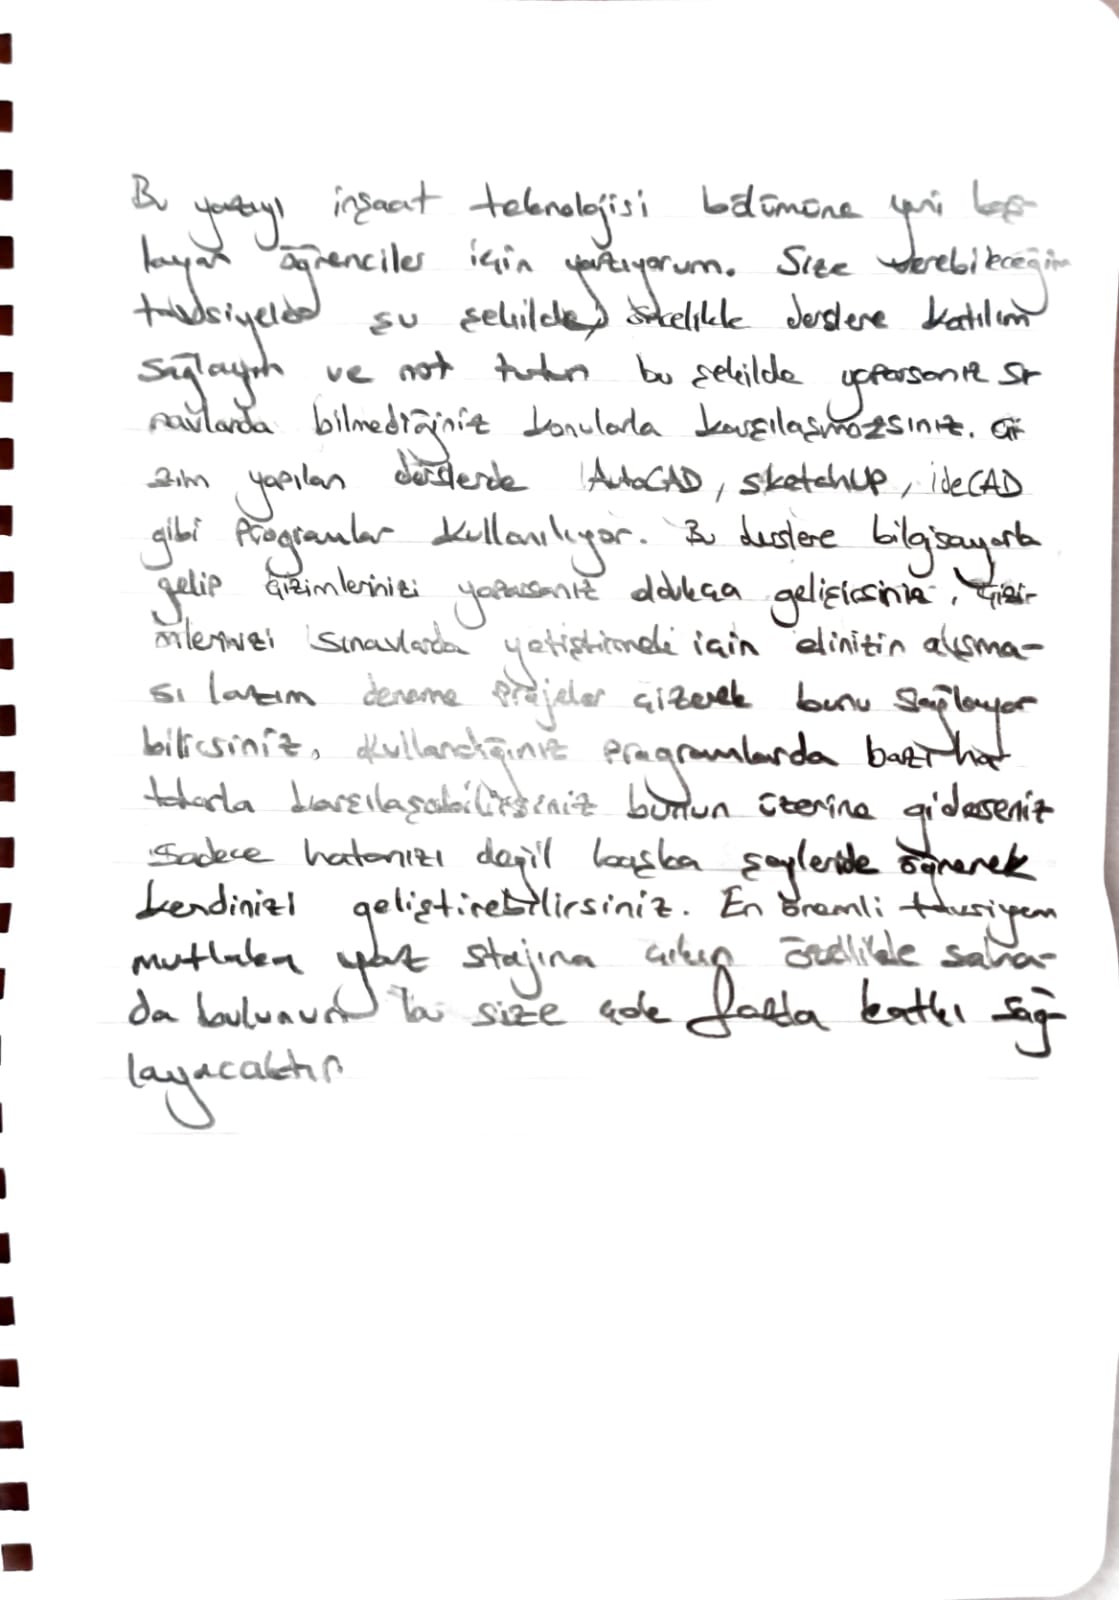 Bu yazıyı inşaat teknolojisi bölümüne yeni baş-
layan öğrenciler için yazıyorum. Size verebileceğim
tavsiyeler şu şekilde, öncelikle derslere katılım
sağlayın ve not tutun bu şekilde yaparsanız sı
navlarda bilmediğiniz konularla karşılaşmazsınız. Çi
zim yapılan derslerde AutoCAD, sketchUP, ideCAD
gibi programlar kullanılıyor. Bu derslere bilgisayarla
gelip çizimlerinizi yaparsanız oldukça gelişirsiniz, Çizi-
mlerinizi sınavlarda yetiştirmek için elinizin alışma-
sı lazım deneme projeler çizerek bunu sağlayor
bilirsiniz, kullandığınız programlarda bazı ha
talarla karşılaşabilirsiniz bunun üzerine giderseniz
sadece hatanızı değil başka şeyleride öğrenerek
kendinizi geliştirebilirsiniz. En önemli tavsiyem
mutlaka yaz stajına çıkın özellikle saha-
da bulunun bu size çok fazla katkı sağ-
layacaktır